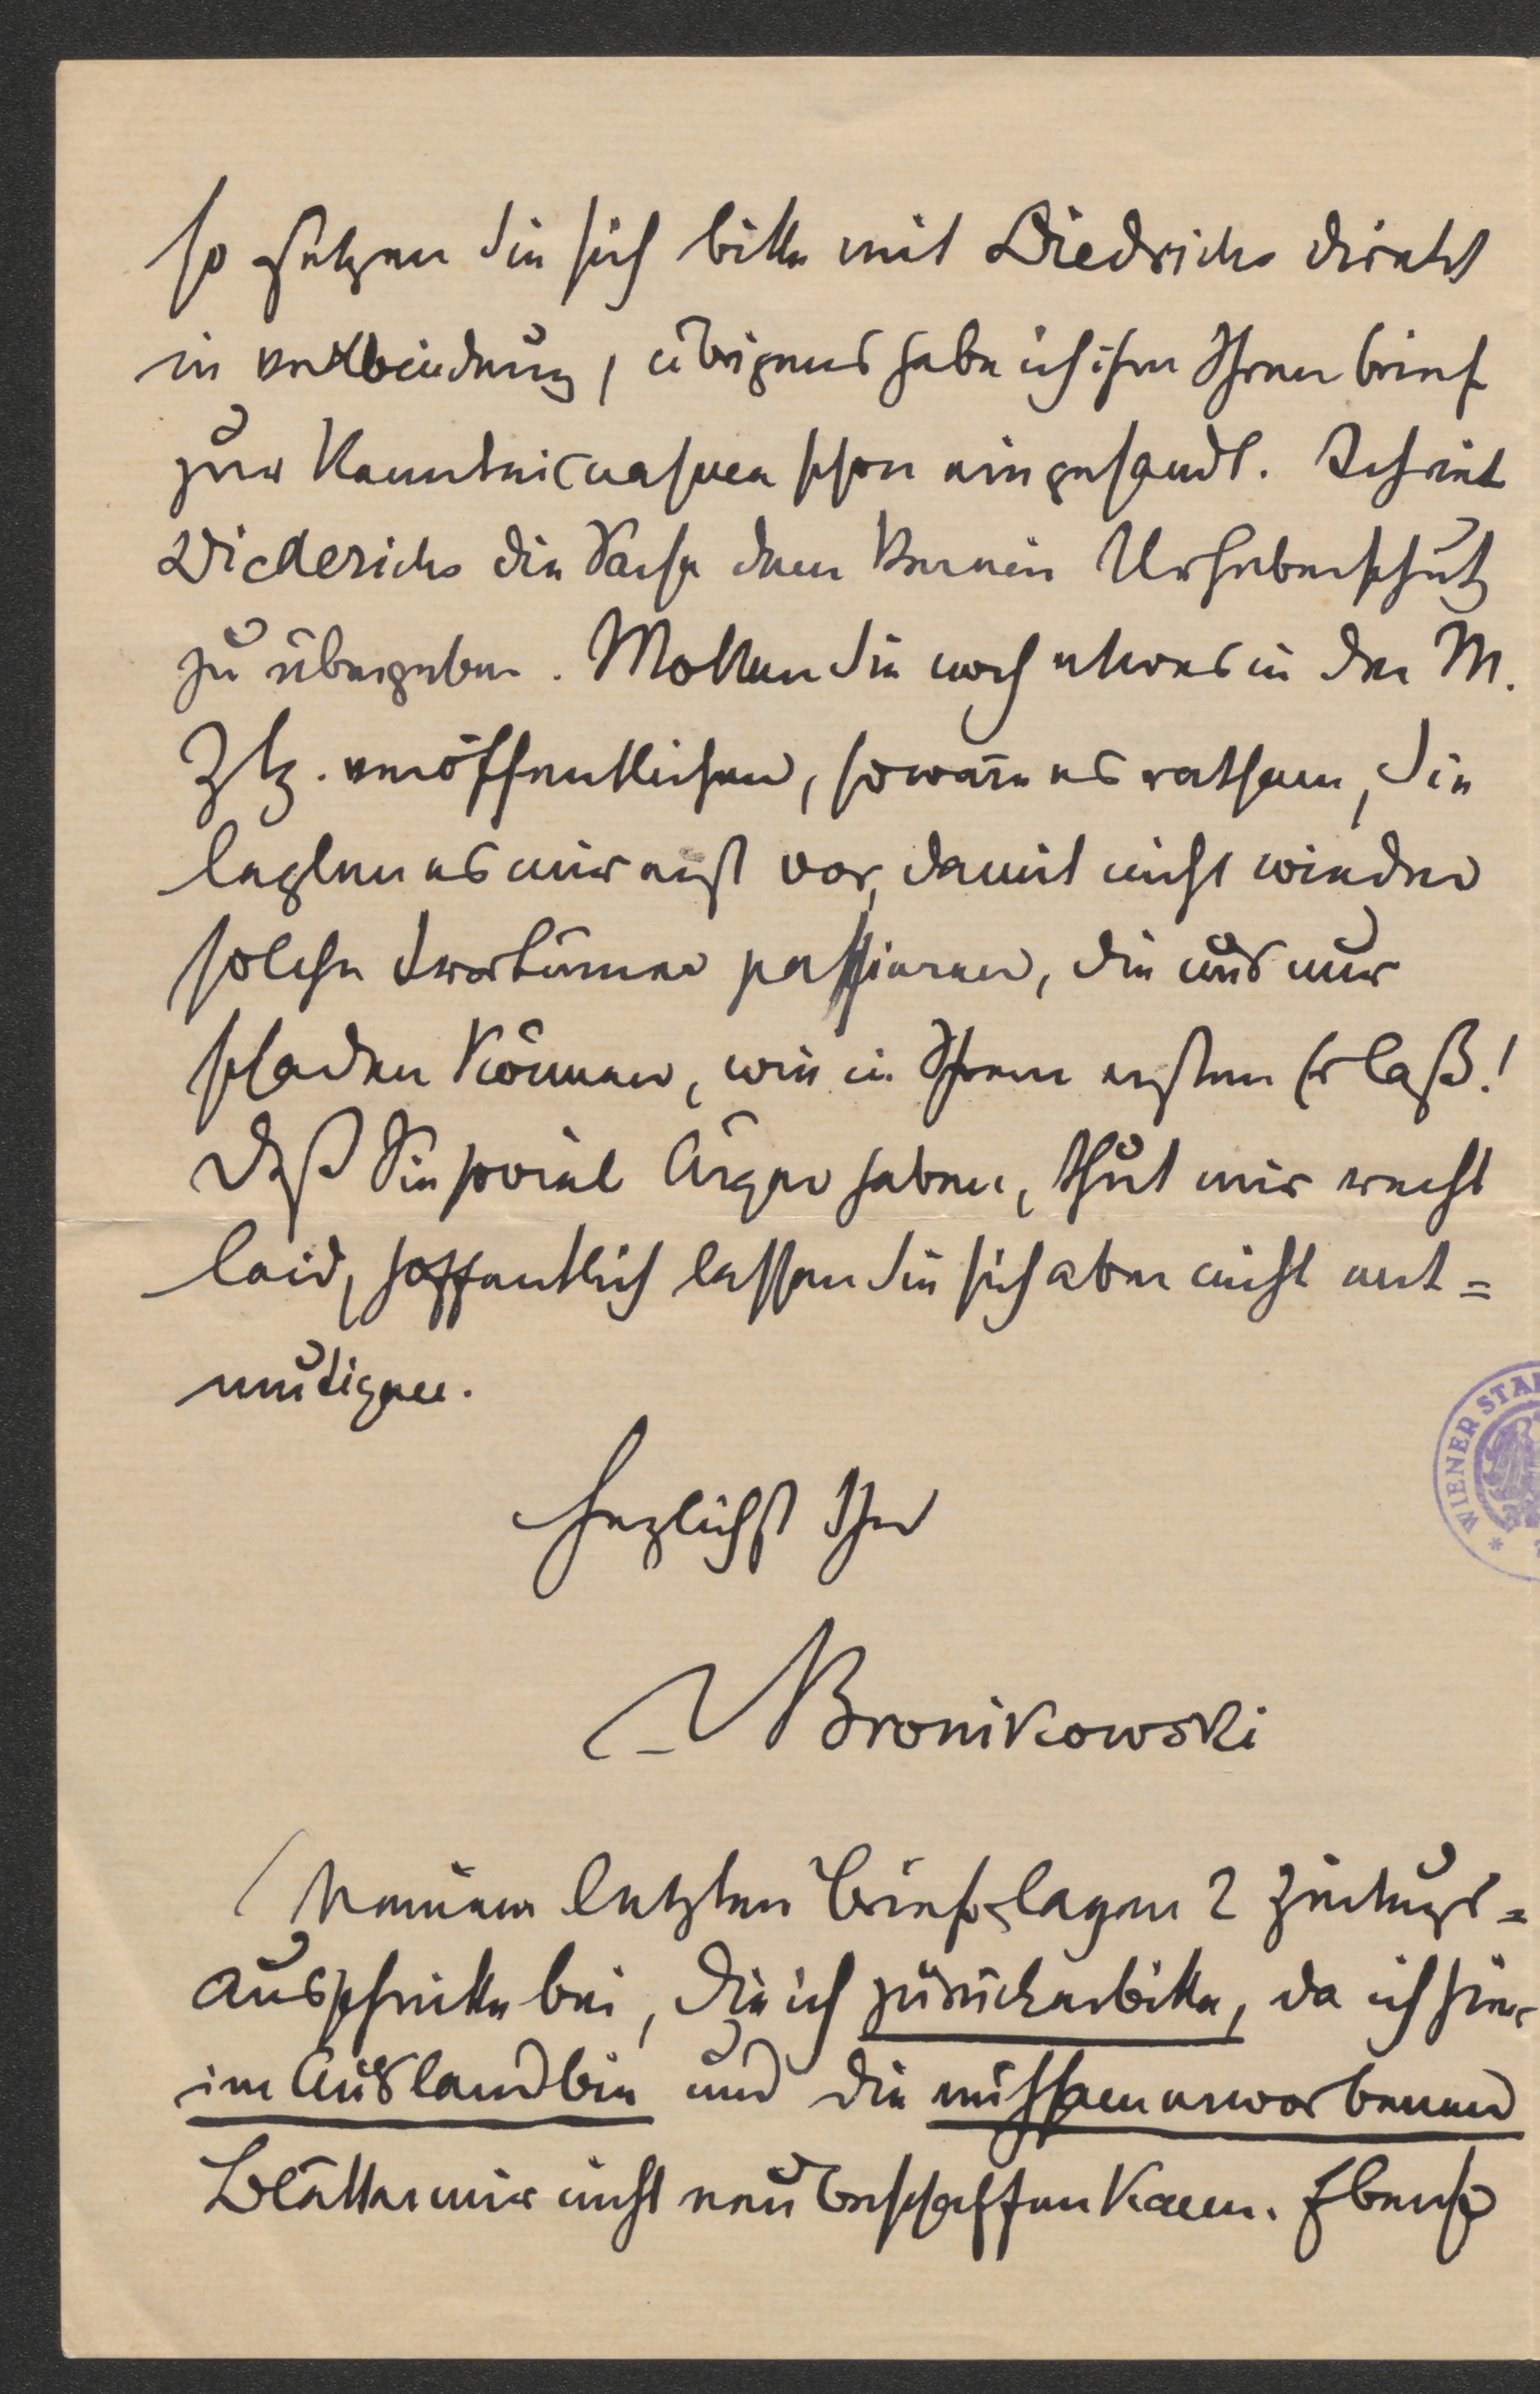 so setzen Sie sich bitte mit Diedrichs direkt
in Verbindung, übrigens habe ich ihm Ihren brief
zur Kenntnisnahme schon eingesandt.
Diederichs die Sache dem Verein Urheberschutz
zu übergeben. Wollen Sie noch etwas in der M.
Ztg. veröffentlichen, so wäre es rathsam, Sie
legten es mir erst vor, damit nicht wieder
solche Irrtümer passieren, die uns nur
schaden können, wie in Ihrem ersten Erlaß!
Daß Sie soviel Ärger haben, thut mir recht
leid, hoffentlich lassen Sie sich aber nicht ent=
mutigen.
Herzlichst Ihr
Bronikowski
Meinem letzten Brief lagen 2 Zeitungs=
ausschnitte bei, die ich zurückerbitte, da ich hier
im Ausland bin und die mühsam erworbenen
Blätter mir nicht neu beschaffen kann. Ebenso
WIENER STA